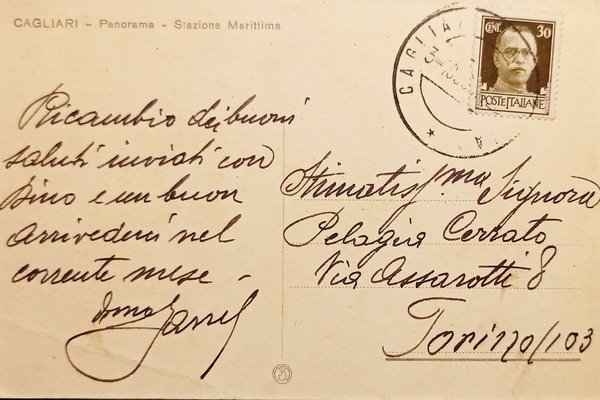 CAGLIARI - Panorama - Stazione Marittima
CENT. 30
POSTE ITALIANE
CAGLIA
Ricambio dei buoni
saluti inviati con
Pino e un buon
arrivederci nel
corrente mese -
Stimatissma Signora
Pelagia Cerrato
Via Assarotti 8
Torino/103